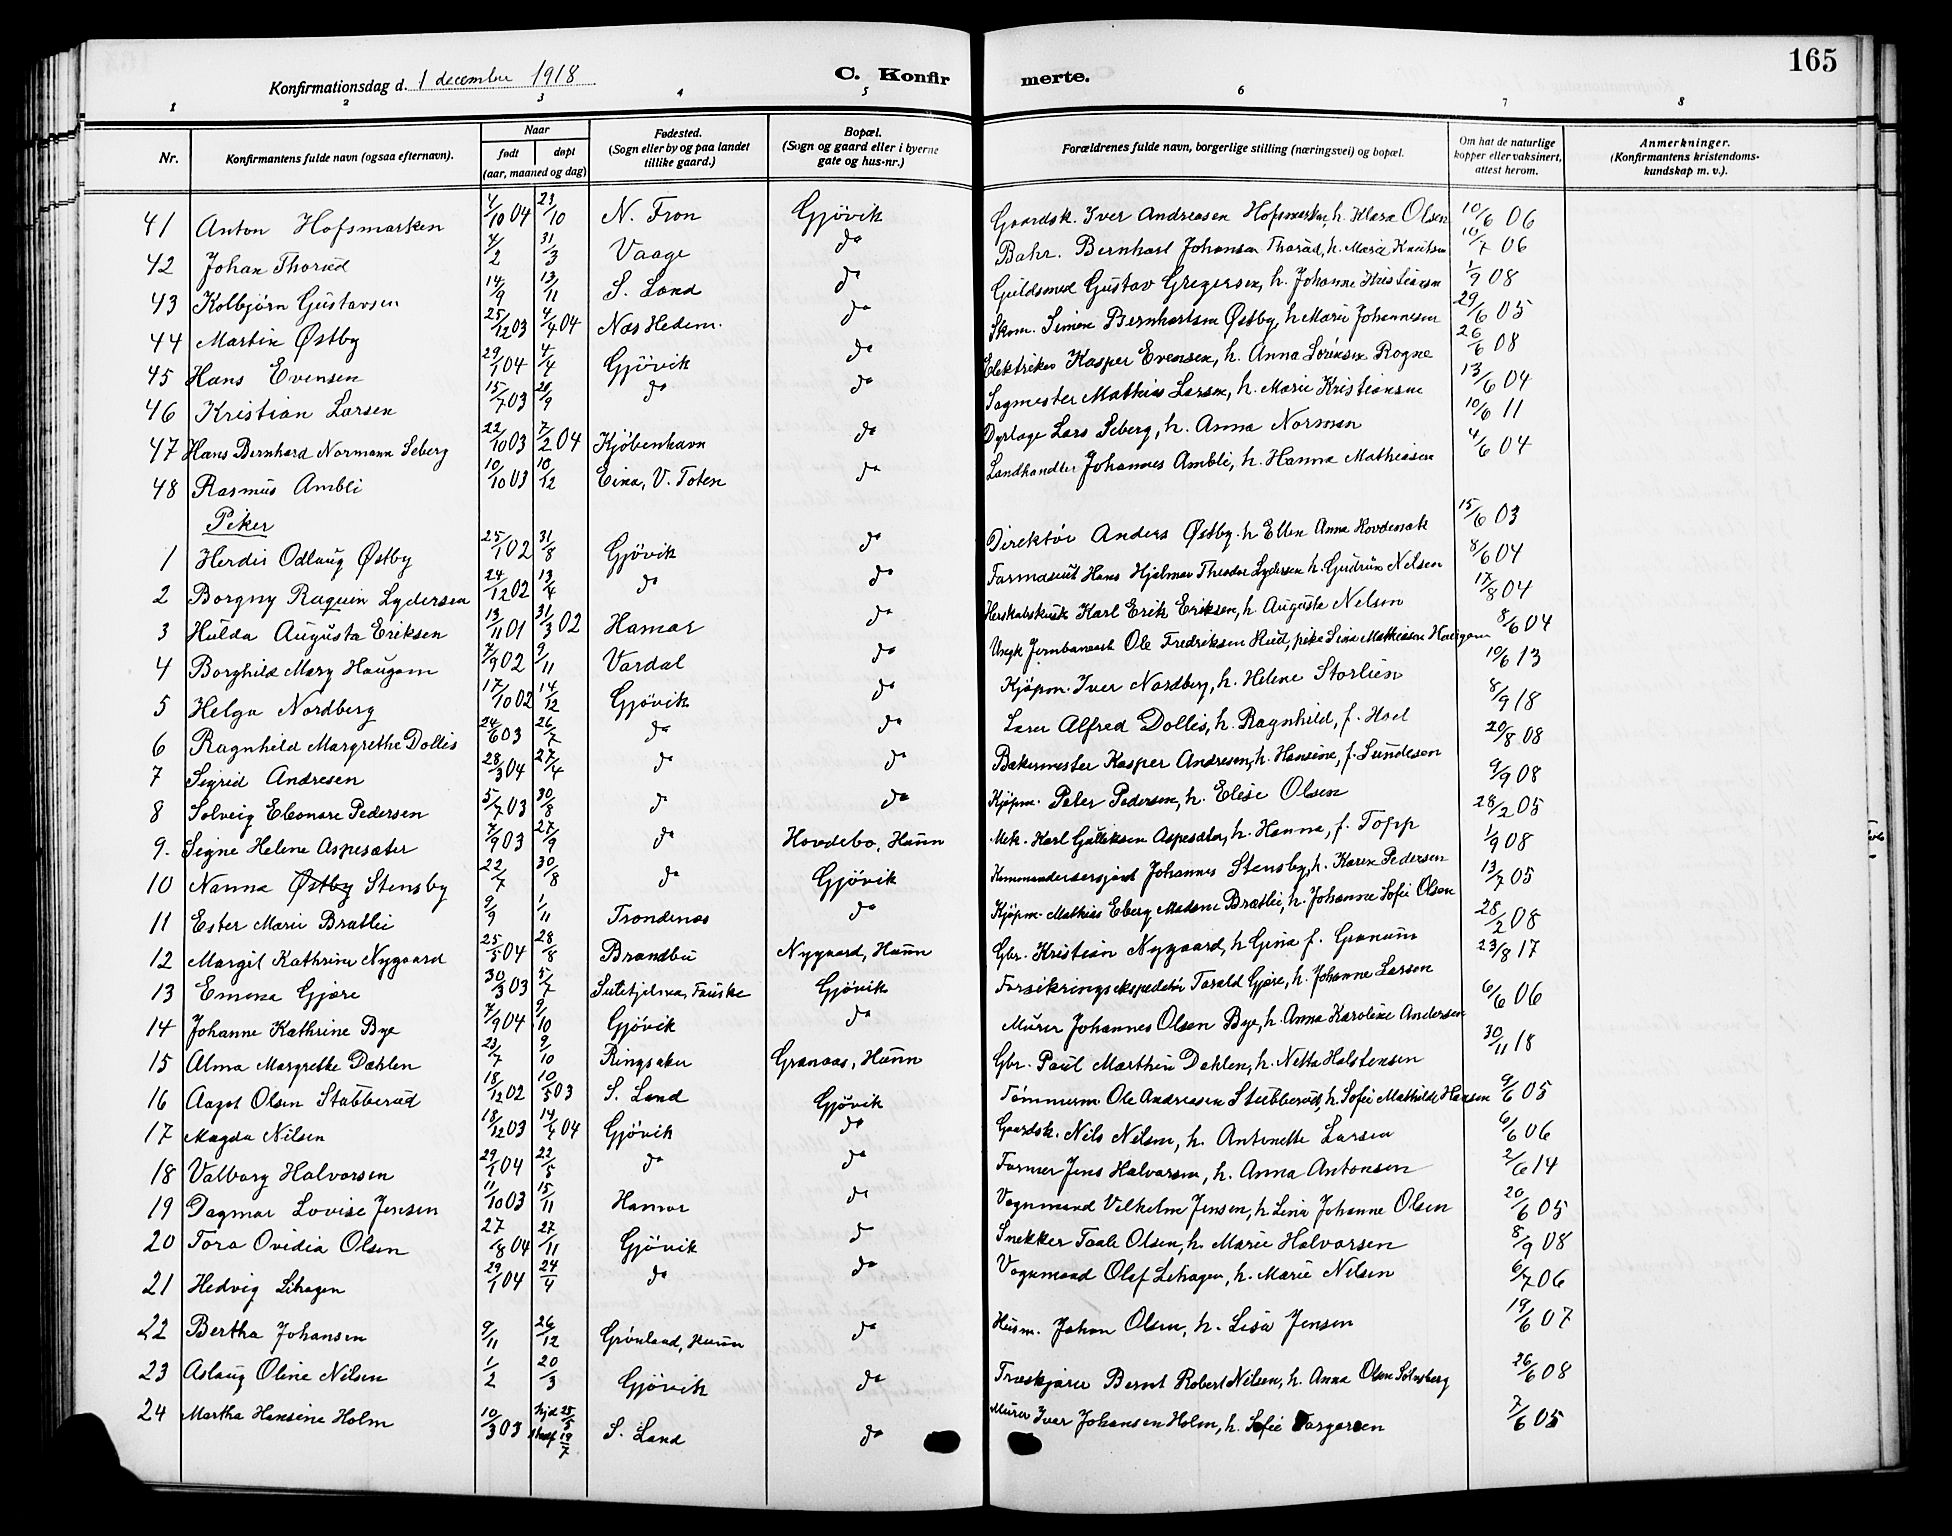 165
Konfirmationsdag d. 1 december 1918 C. Konfir merte.
1 2 3 4 5 6 7 8
Nr. Konfirmantens fulde navn (ogsaa efternavn). Naar født døpt (aar, maaned og dag) Fødested. (Sogn eller by og paa landet tillike gaard.) Bopæl. (Sogn og gaard eller i byerne gate og hus-nr.) Forældrenes fulde navn, borgerlige stilling (næringsvei) og bopæl. Om hat de naturlige kopper eller vaksinert, attest herom. Anmerkninger. (Konfirmantens kristendomskundskap m. v.).
41 Anton Hofsmarken 4/10 04 23/10 N. Fron Gjövik Gaardsk. Iver Andreasen Hofsmarken, h. Klara Olsen 10/6 06
42 Johan Thorud 4/2 31/3 Vaage do Bahr. Bernhart Johansen Thorud, h. Marie Knutsen 10/7 06
43 Kolbjörn Gustavsen 14/9 13/11 S. Land do Guldsmed Gustav Gregersen, h. Johanne Kristiansen 1/9 08
44 Martin Østby 25/12 03 4/4 04 Næs Hedem. do Skom. Simen Bernhartsen Østby, h. Marie Johannesen 29/6 05
45 Hans Evensen 29/1 04 4/4 Gjövik do Elektriker Kasper Evensen, h. Anna Sörensen Rogne 26/6 08
46 Kristian Larsen 15/7 03 20/9 do do Sagmester Mathias Larsen, h. Marie Kristiansen 13/6 04
47 Hans Bernhard Normann Seberg 22/10 03 7/2 04 Kjöbenhavn do Dyrlæge Lars Seberg, h. Anna Norman 10/6 11
48 Rasmus Ambli 10/10 03 10/12 Eina, V. Toten do Landhandler Johannes Ambli, h. Hanna Mathiasen 4/6 04
Piker
1 Herdis Odlaug Østby 25/1 02 31/8 Gjövik do Direktör Anders Østby h. Ellen Anna Hovdenak 15/6 03
2 Borgny Raguin Lydersen 24/12 02 13/4 do do Farmaceut Hans Hjalmar Theodor Lydersen h. Gudrun Nelsen 8/6 04
3 Hulda Augusta Eriksen 13/11 01 31/3 02 Hamar do Herskabskusk Karl Erik Eriksen, h. Auguste Nelson 17/8 04
4 Borghild Mary Haugom 7/9 02 9/11 Vardal do Ungk. Jernbanearb. Ole Fredriksen Hud, pike Lina Mathiasen Haugom 8/6 04
5 Helga Nordberg 17/10 02 14/12 Gjövik do Kjöpm. Iver Nordberg, h. Helene Storlien 10/6 13
6 Ragnhild Margrethe Dollis 24/6 03 26/7 do do Lærer Alfred Dollis, h. Ragnhild, f. Hoel 8/9 18
7 Sigrid Andresen 28/3 04 27/4 do do Bakermester Kasper Andresen, h. Hansine, f. Sundesen 20/8 08
8 Solveig Eleonore Pedersen 5/7 03 30/8 do do Kjöpm. Peter Pedersen, h. Elise Olsen 9/9 08
9. Signe Helene Aspesæter 7/9 03 27/9 do Hovdebo, Hunn Mek. Karl Gulliksen Aspesæter, h. Hanna, f. Topp 28/2 05
10 Nanna Østby Stensby 22/7 30/8 do Gjövik Kommandersersjant Johannes Stensby, h. Karen Pedersen 1/9 08
11 Ester Marie Bratlie 9/9 1/11 Trondenæs do Kjöpm. Mathias Eberg Madsen Bratlie, h. Johanne Sofie Olsen 13/7 05
12 Margit Kathrine Nygaard 25/5 04 28/8 Brandbu Nygaard, Hunn Gbr. Kristian Nygaard, h. Gina f. Granum 28/2 08
13 Emma Gjære 30/3 03 5/7 Sulitjelma, Fauske Gjövik Forsikringsekspeditör Torald Gjære, h. Johanne Larsen 23/8 17
14 Johanne Kathrine Bye 7/9 04 9/10 Gjövik do Murer Johannes Olsen Bye, h. Anna Karoline Andersen 6/6 06
15 Alma Margrethe Dahlen 23/7 9/10 Ringsaker Granaas, Hunn Gbr. Paul Marthin Dahlen, h. Netta Halstensen 30/11 18
16 Aagot Olsen Stubberud 18/12 02 10/5 03 S. Land Gjövik Tömmerm. Ole Andreasen Stubberud, h. Sofie Mathilde Hansen 9/6 05
17 Magda Nilsen 18/12 03 14/4 04 Gjövik do Gaardsk. Nils Nilsen, h. Antonette Larsen 6/6 06
18 Valborg Halvorsen 29/1 04 22/5 do do Former Jens Halvorsen, h. Anna Antonsen 2/6 14
19 Dagmar Lovise Jensen 11/10 03 15/11 Hamar do Vognmand Vilhelm Jensen, h. Lina Johanne Olsen 20/6 05
20 Tora Ovidia Olsen 27/8 04 27/11 Gjövik do Snekker Taale Olsen, h. Marie Halvorsen 8/9 08
21 Hedvig Lihagen 29/1 04 24/4 do do Vognmand Olaf Lihagen, h. Marie Nilsen 6/7 06
22 Bertha Johansen 9/11 26/12 Grönland, Hunn do Husm. Johan Olsen, h. Lisa Jensen 19/6 07
23 Aslaug Oline Nilsen 1/2 20/3 Gjövik do Træskjærer Bernt Robert Nilsen, h. Anna Olsen Solberg 26/6 08
24 Martha Hansine Holm 10/3 03 hjd 25/5 stadf 19/7 S. Land do Murer Iver Johansen Holm, h. Sofie Torgersen 7/6 05